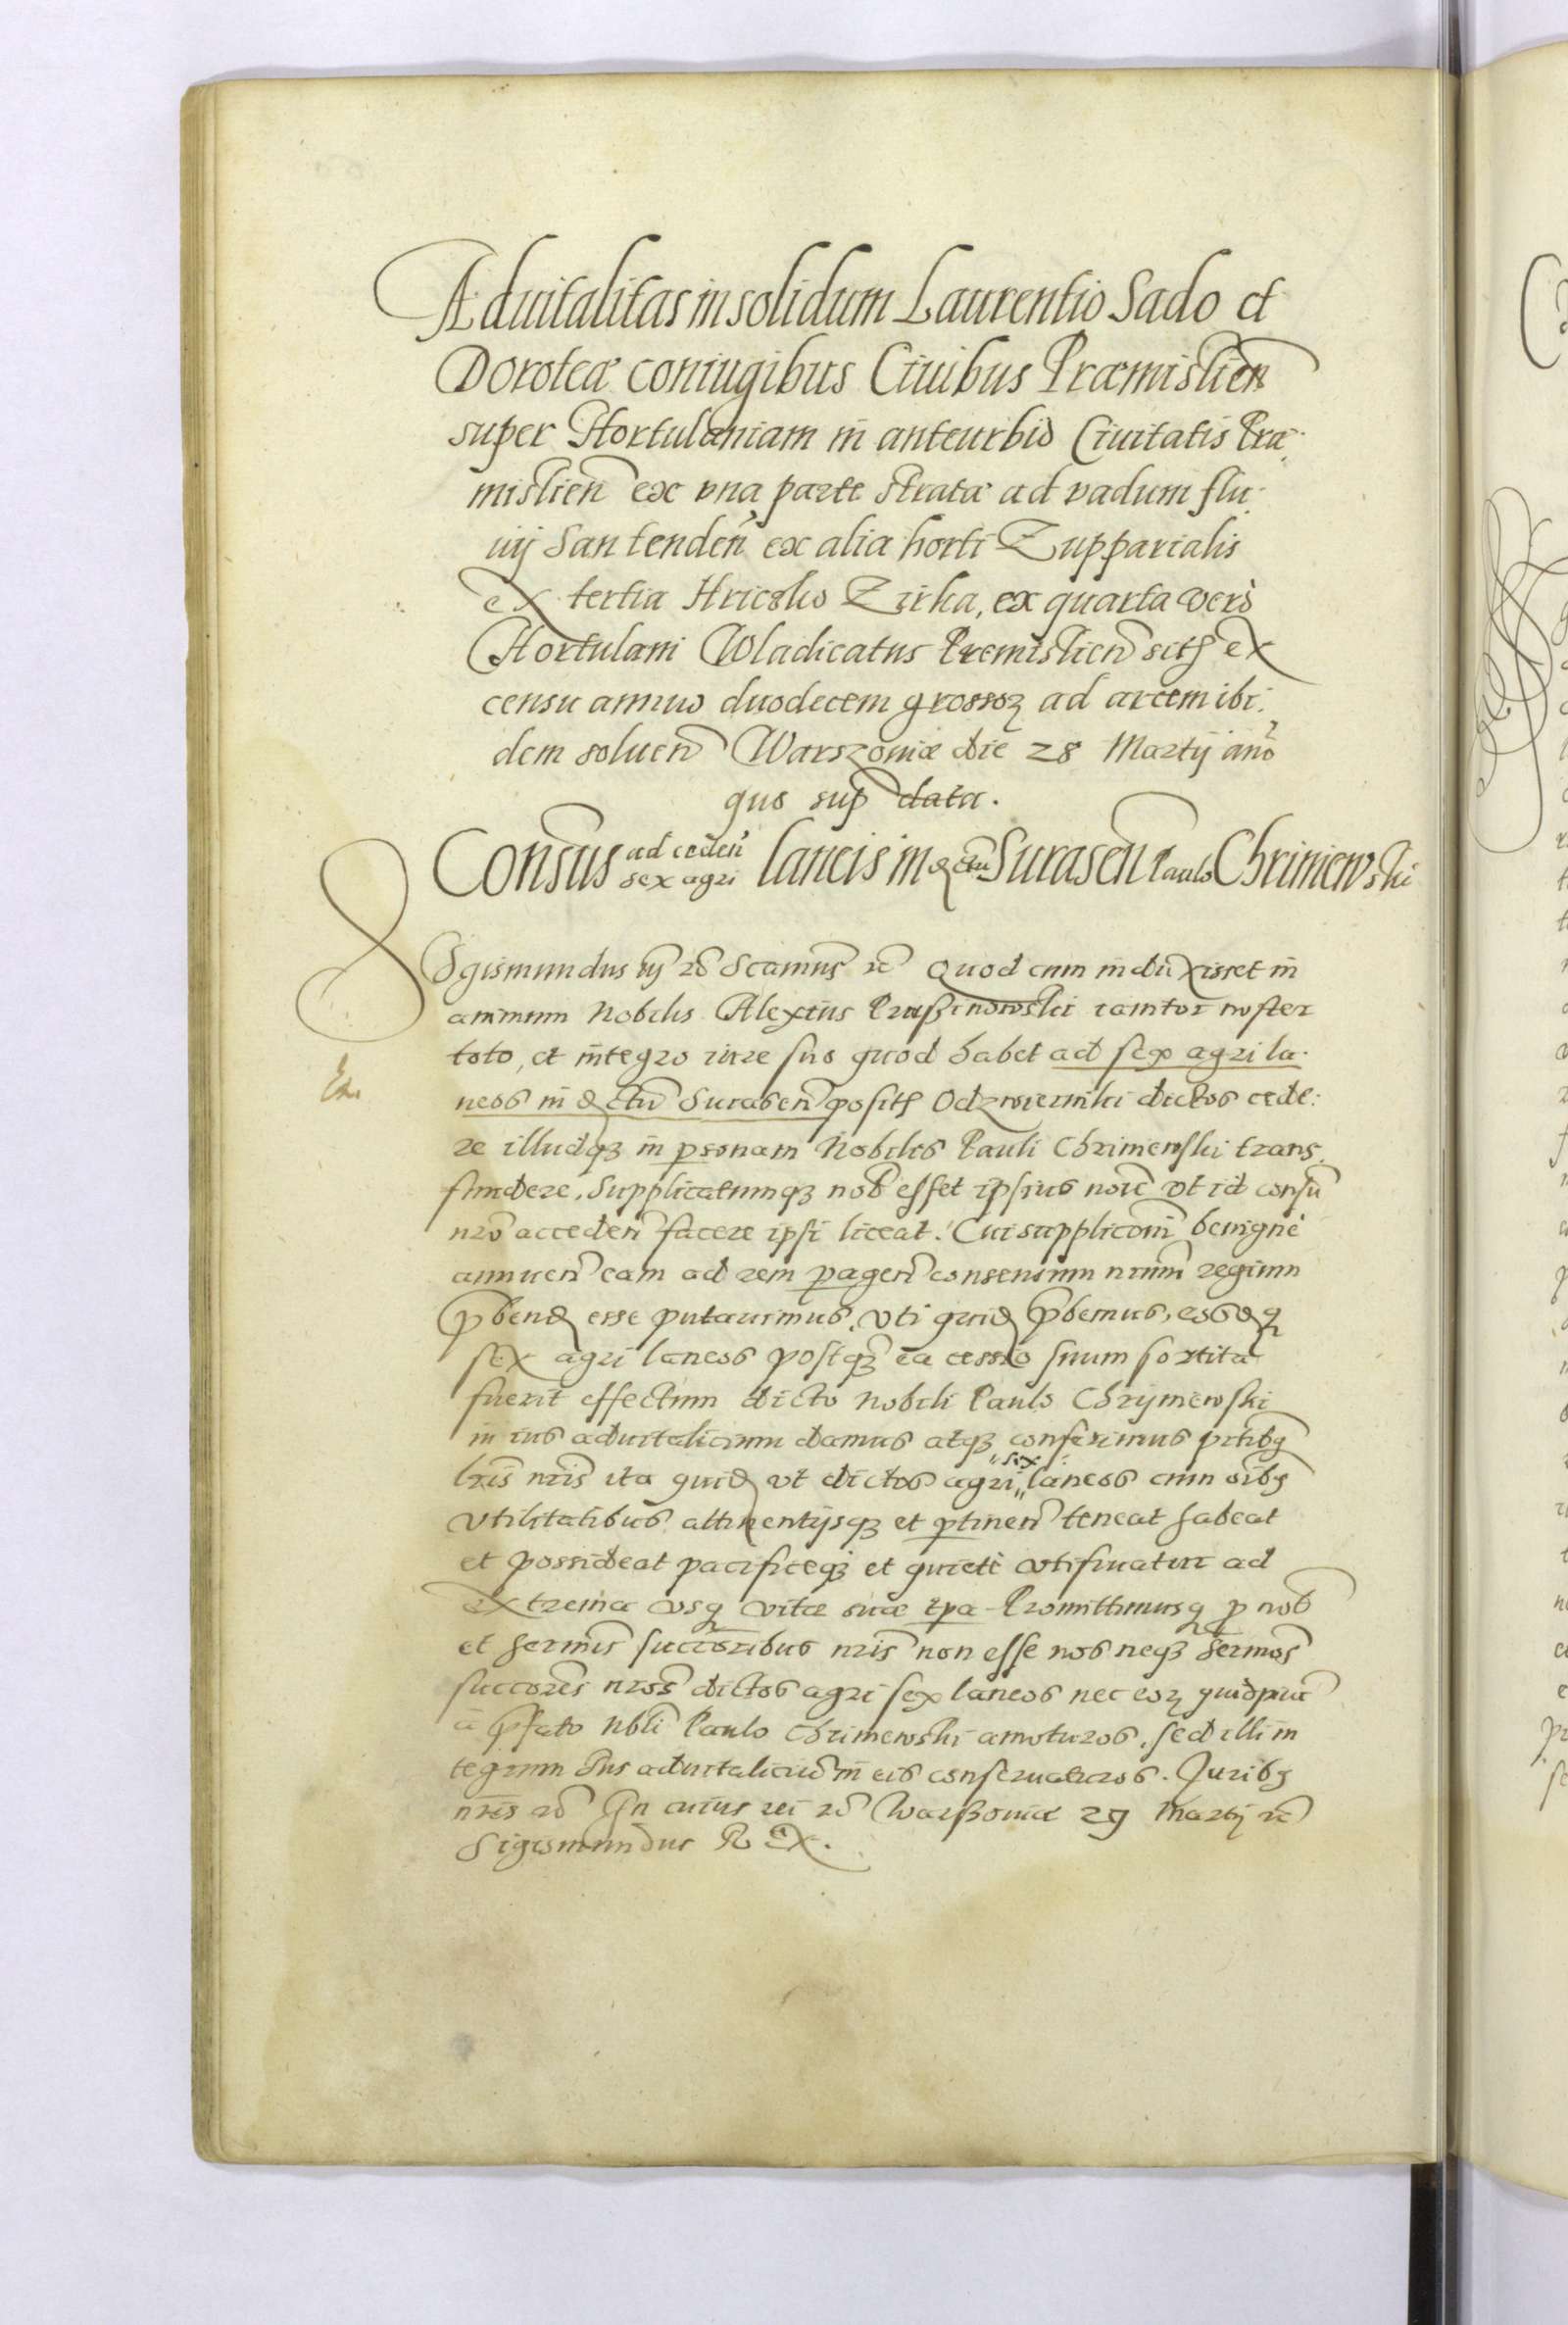 Aduitalitas in solidum Laurentio Sado et
Doroteæ coniugibus Ciuibus Præmislien
super Hortulaniam in anteurbio Ciuitatis Præ
mislien ex vna parte stratæ ad vadum flu
uij San tenden ex alia horti Zupparialis
ex tertia Hricsko Zirka, ex quarta verò
Hortulani Wladicatus Premislien sit ex
censu annuo duodecem grossoꝝ ad arcem ibi:
dem soluen Warszouiæ die 28 Martij ano
quo sup data.
Consus ad ceden sex agri laneis in dctu Surasen Paulo Chriniewski
Sigismundus Quod cum induxisset in
animum Nobilis Alexius noster
toto, et integro iure suo quod habet ad sex agri la:
neos in Surasen posit Odzwierniki dictos cede:
re illudqꝫ in psonam Nobilis Pauli Chriniewski trans
fundere, Supplicatumqꝫ nob esset ipsius noie vt id consu
nro acceden facere ipsi liceat. Cui suppliconi benigne
annuen eam ad rem pagen consensum nrum regium
pbend esse putauimus, vti quid pbemus, eosdꝗ
sex agri laneos postqꝫ ea cessio suum sortita
fuerit effectum dicto Nobili Paulo Chrijniewski
in ius aduitalicium damus atqꝫ conferimus pntibꝫ
lris nris ita quid vt dictos agri sex laneos cum oibꝫ
vtilitatibus attinentijsqꝫ et ptinen teneat habeat
et possideat pacificeqꝫ et quiete vtifruatur ad
extrema vsqꝫ vitæ suæ tpa Promittimusqꝫ p nob
et sermis succoribus nris non esse nos neqꝫ sermos
succores nros dictos agri sex laneos nec eoꝝ quidpiā
a pfato Nbli Paulo Chriniewski amoturos, sed illi in
tegrum Ius aduitaliciū in eis conseruaturos. Juribꝫ
nris In cuius rei Warßouiæ 29 Martij
Sigismundus Rex.